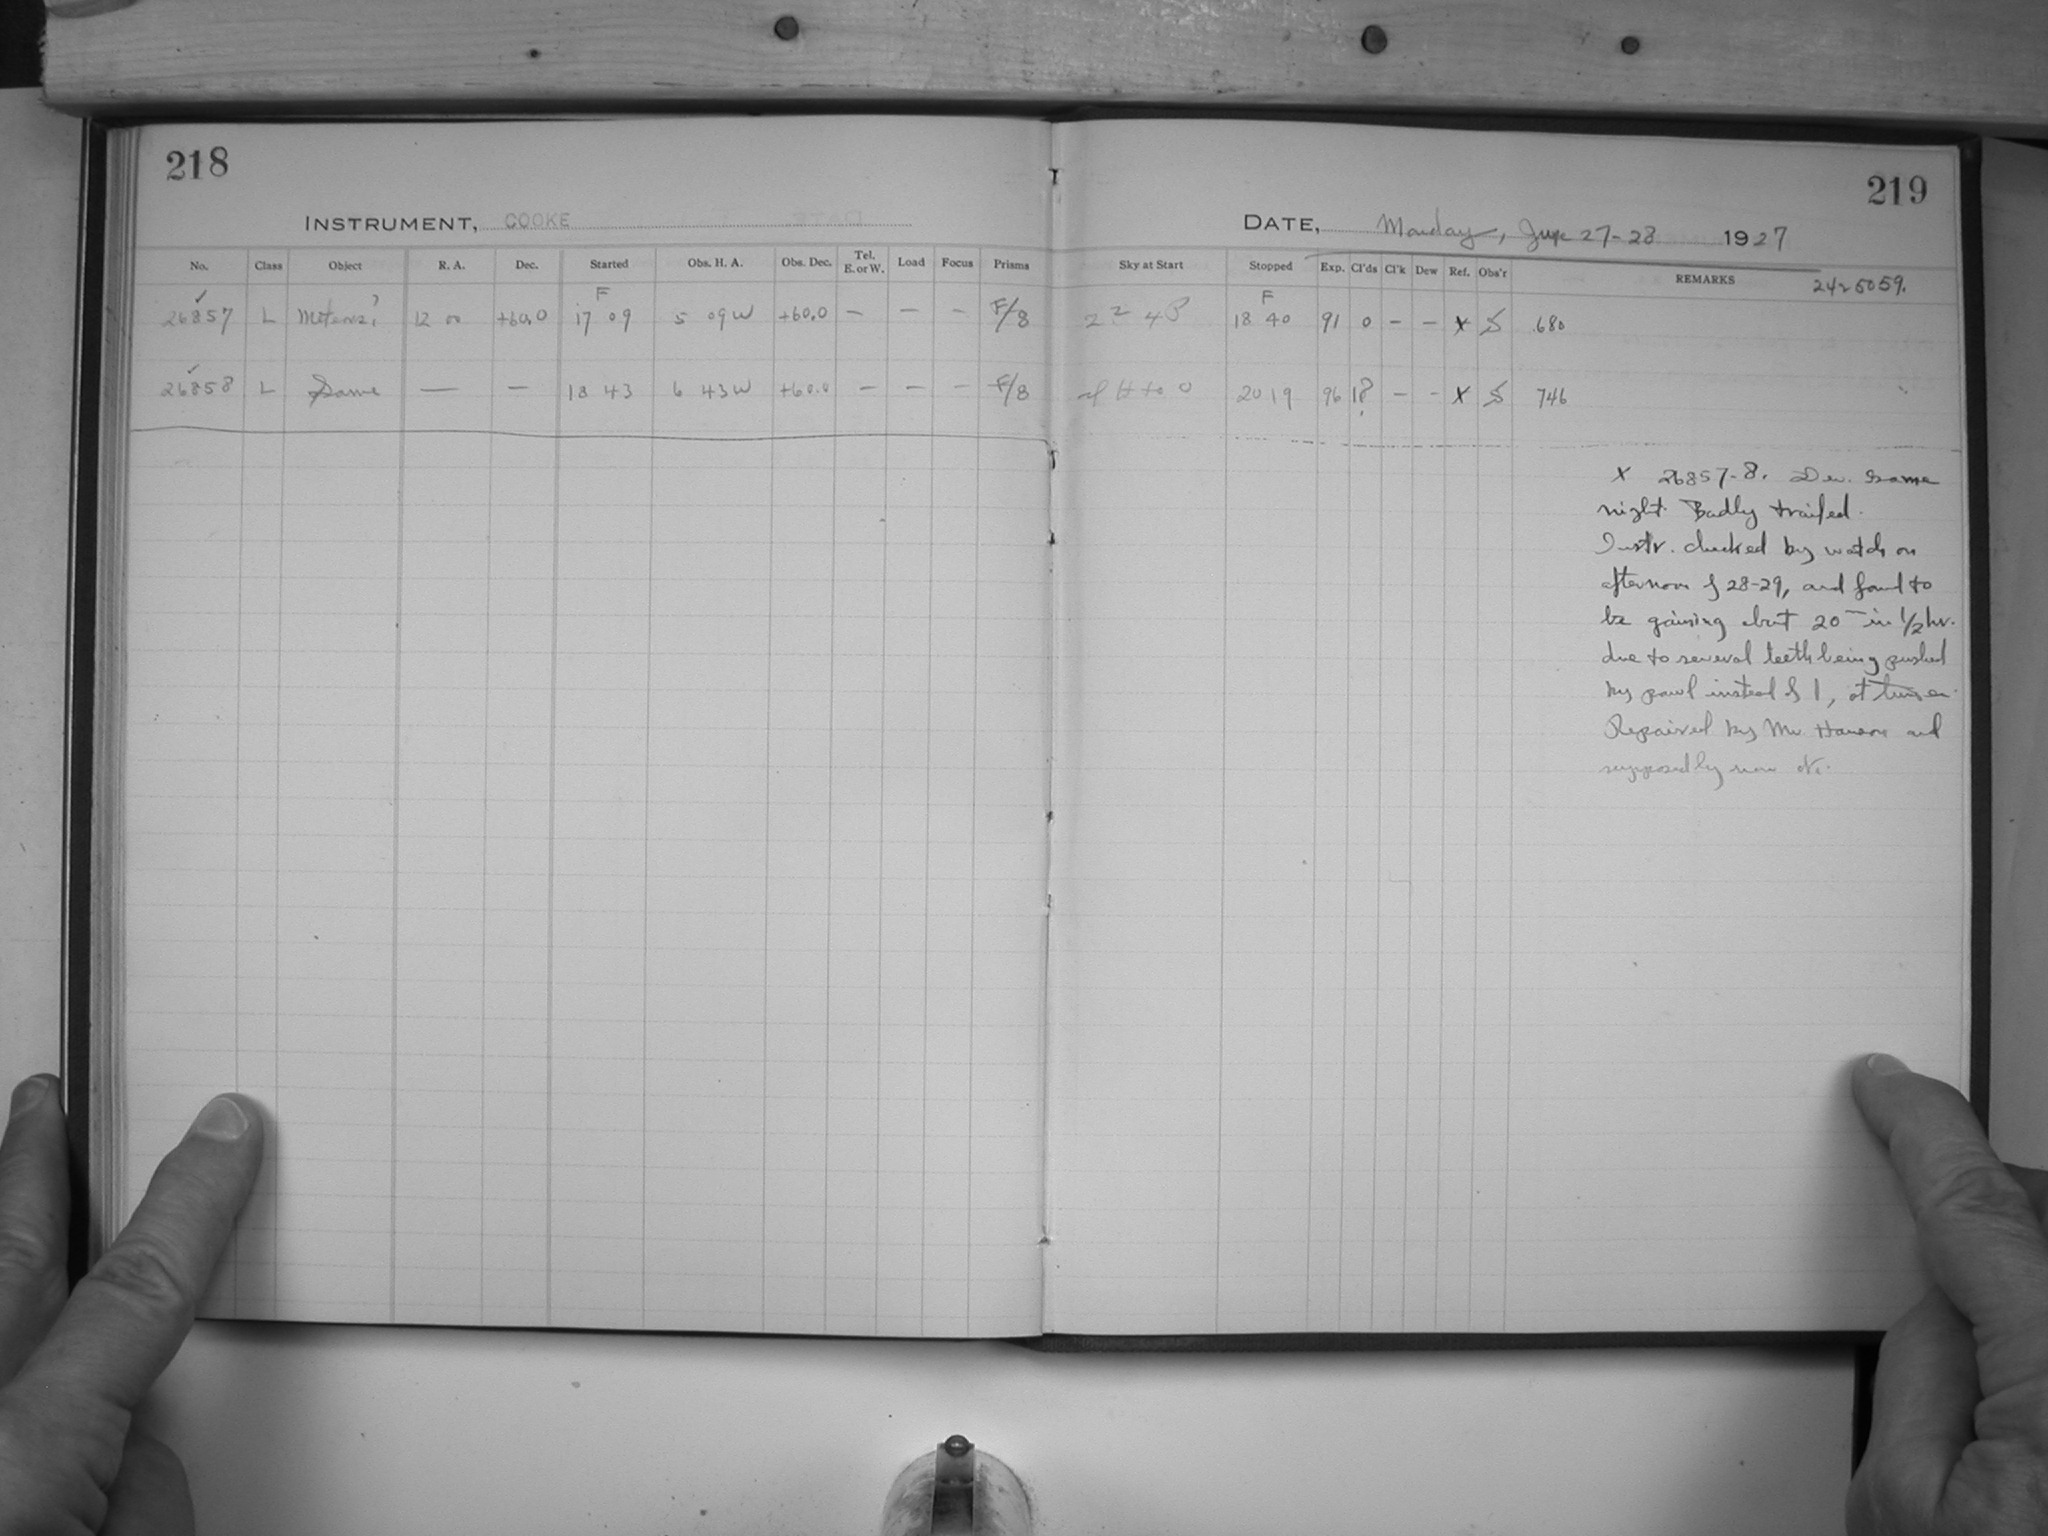 218
219
INSTRUMENT, COOKE
DATE, Monday, June 27-28 1927
No. Class Object R. A. Dec. Started Obs. H. A. Obs. Dec. Tel. E. or W. Load Focus Prisms Sky at Start Stopped Exp. Cl'ds Cl'k Dew Ref. Obs'r REMARKS 2425059.
F F
26857 L Meteors? 12 00 +60.0 17 09 5 09 W +60.0 — — — F/8 18 40 91 0 — — X S .680
26858 L Same — — 18 43 6 43 W +60.0 — — — F/8 20 19 96 1? — — X S 746
X 26857-8. Dev. same
night. Badly trailed.
Instr. checked by watch on
afternoon of 28-29, and found to
be gaining about 20 m in 1/2 hr.
due to several teeth being pushed
by pawl instead of 1, at times.
Repaired by Mr. and
supposedly now ok.